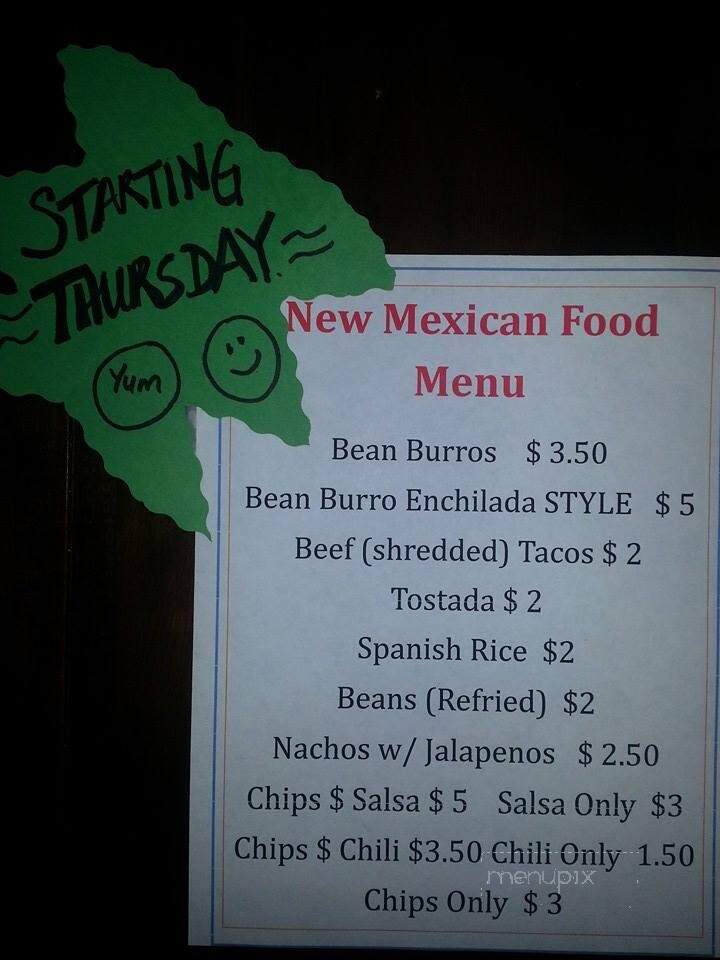 STARTING
THURSDAY
Yum
New Mexican Food
Menu
Bean Burros $ 3.50
Bean Burro Enchilada STYLE $ 5
Beef (shredded) Tacos $ 2
Tostada $ 2
Spanish Rice $2
Beans (Refried) $2
Nachos w/ Jalapenos $ 2.50
Chips $ Salsa $ 5 Salsa Only $3
Chips $ Chili $3.50 Chili Only 1.50
menupix
Chips Only $ 3